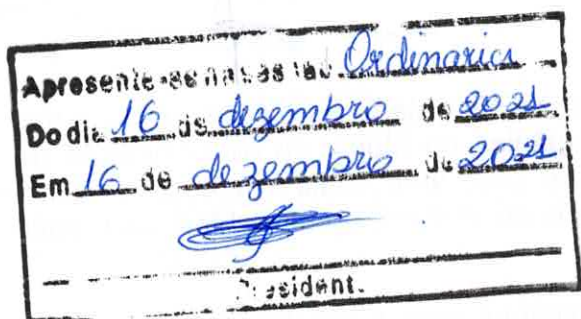 Apresente-se na sessão Ordinaria
Do dia 16 de dezembro de 2021
Em 16 de dezembro de 2021
President.